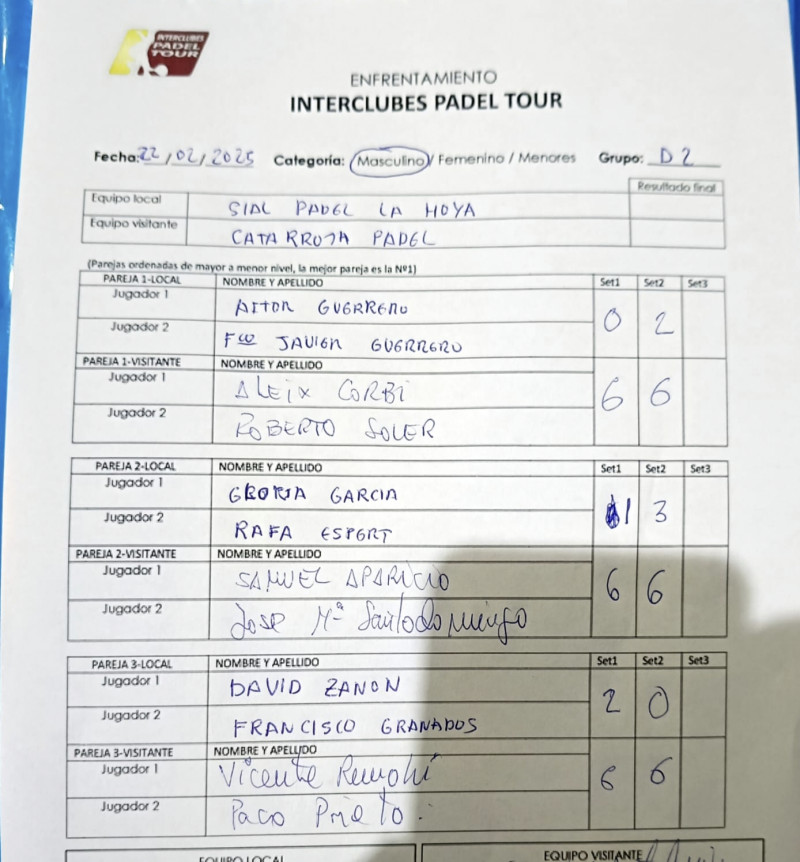 INTERCLUBES
PADEL
TOUR
ENFRENTAMIENTO
INTERCLUBES PADEL TOUR
Fecha: 22/02/2025 Categoría: Masculino / Femenino / Menores Grupo: D2
Resultado final
Equipo local SIAL PADEL LA HOYA
Equipo visitante CATARROJA PADEL
(Parejas ordenadas de mayor a menor nivel, la mejor pareja es la Nº1)
PAREJA 1-LOCAL NOMBRE Y APELLIDO Set1 Set2 Set3
Jugador 1 AITOR GUERRERO
0 2
Jugador 2 Fco JAVIER GUERRERO
PAREJA 1-VISITANTE NOMBRE Y APELLIDO
Jugador 1 ALEIX CORBI
6 6
Jugador 2 ROBERTO SOLER
PAREJA 2-LOCAL NOMBRE Y APELLIDO Set1 Set2 Set3
Jugador 1 GARCIA
1 3
Jugador 2 RAFA ESPERT
PAREJA 2-VISITANTE NOMBRE Y APELLIDO
Jugador 1 SAMUEL APARICIO
6 6
Jugador 2 Jose Mª Santodomingo
PAREJA 3-LOCAL NOMBRE Y APELLIDO Set1 Set2 Set3
Jugador 1 DAVID ZANON
2 0
Jugador 2 FRANCISCO GRANADOS
PAREJA 3-VISITANTE NOMBRE Y APELLIDO
Jugador 1 Vicente Remohí
6 6
Jugador 2 Paco Prieto.
EQUIPO LOCAL EQUIPO VISITANTE